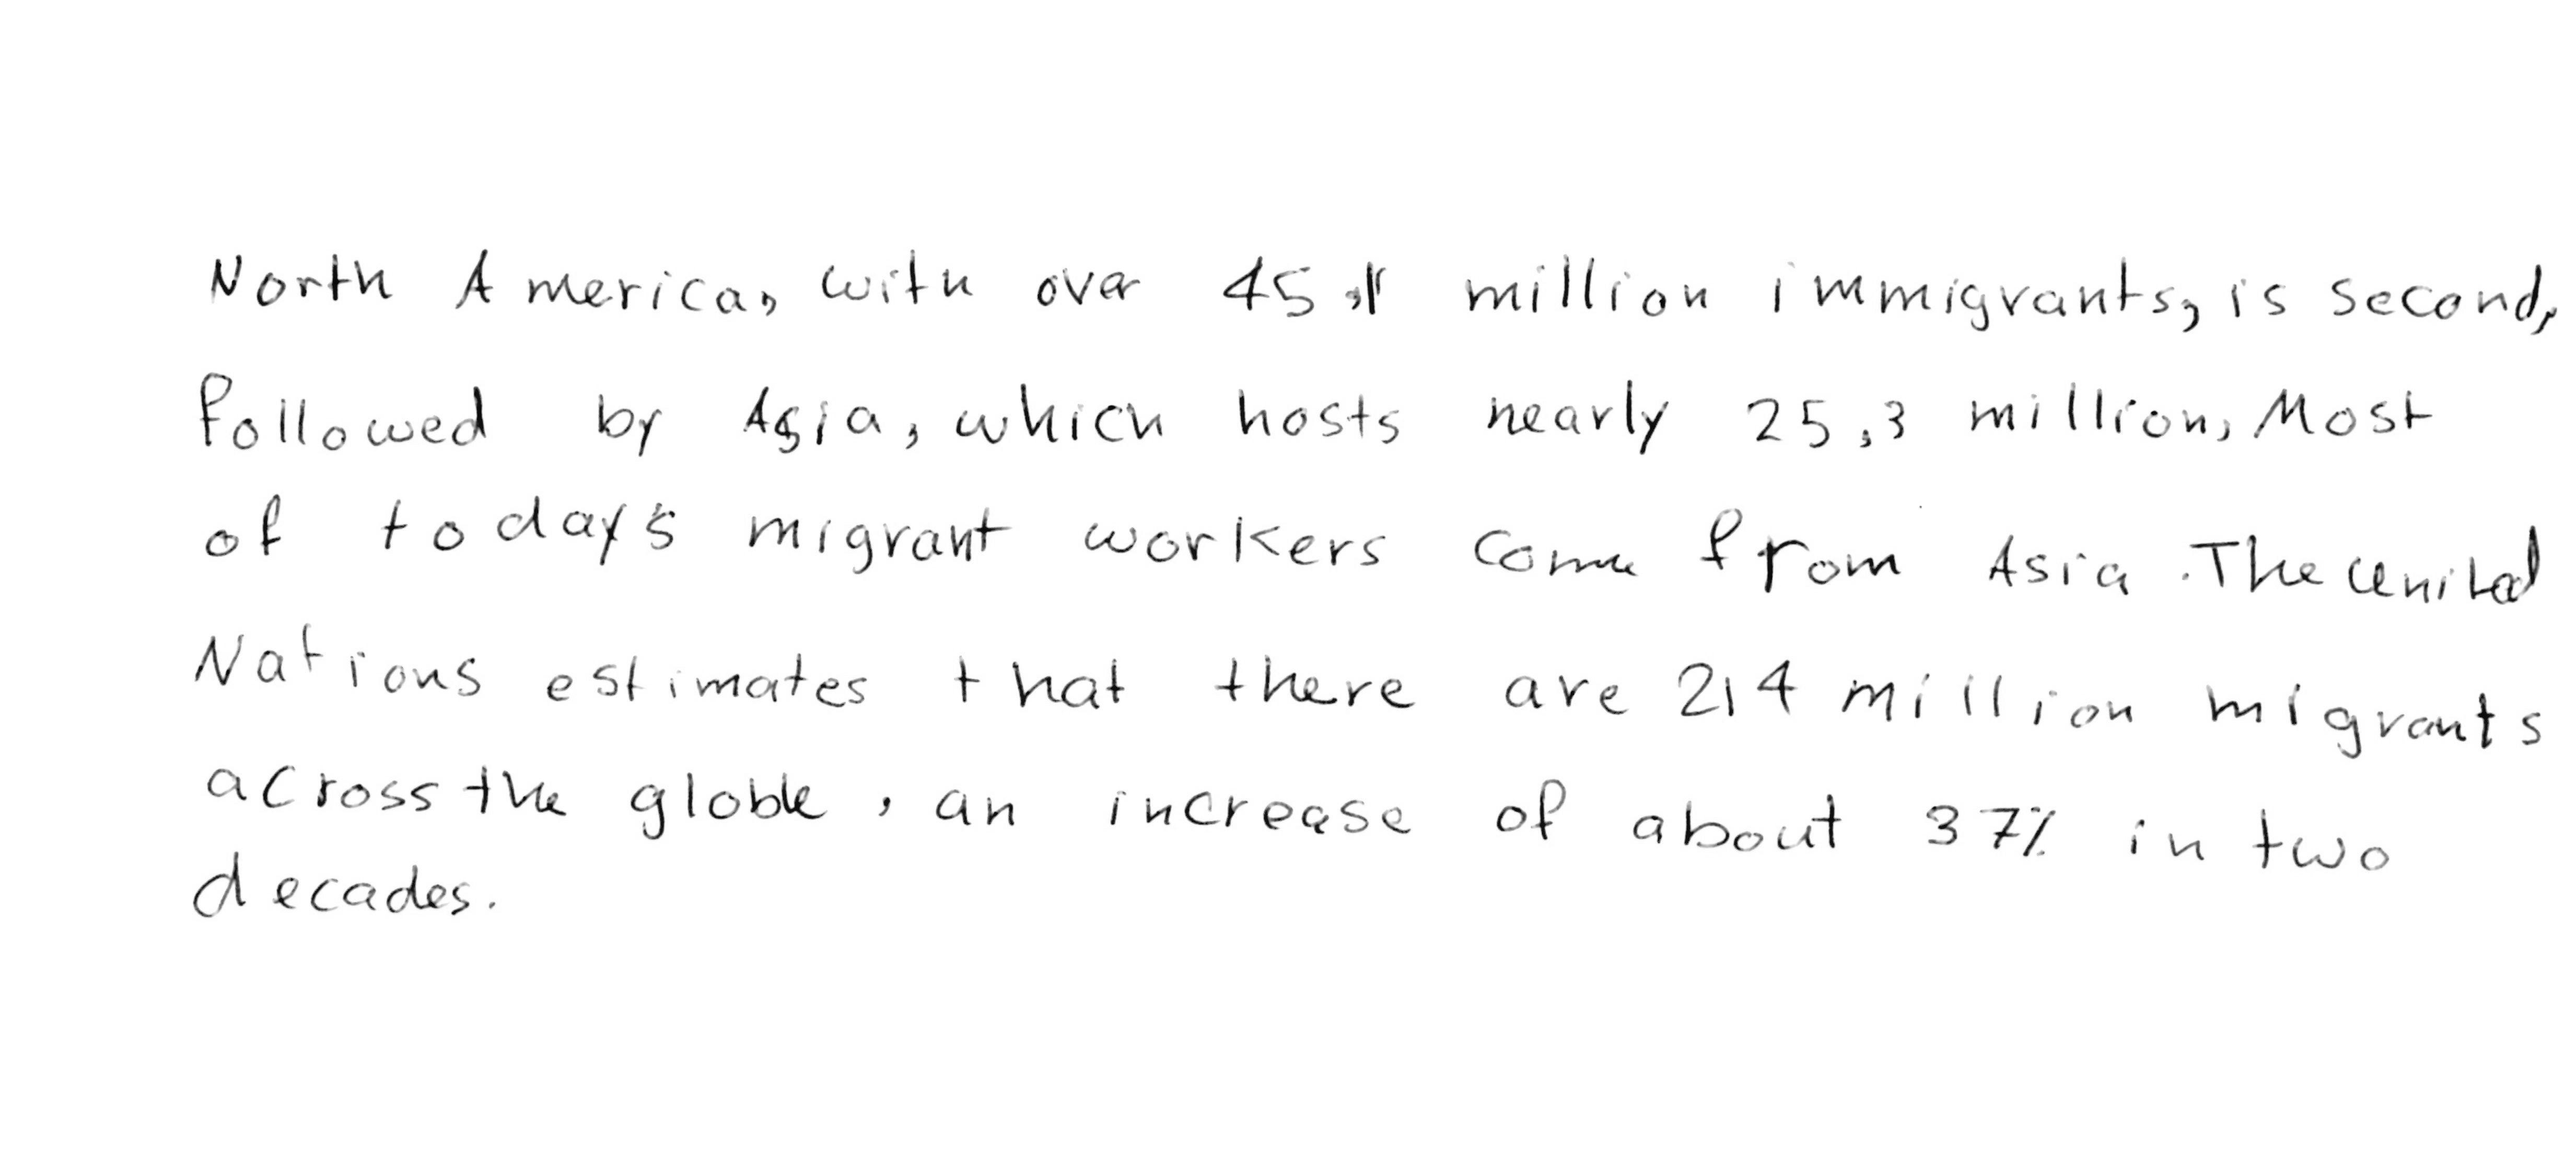 North America, with over 45,1 million immigrants, is second,
followed by Asia, which hosts nearly 25,3 million, Most
of today's migrant workers come from Asia. The United
Nations estimates that there are 214 million migrants
across the globe, an increase of about 37% in two
decades.